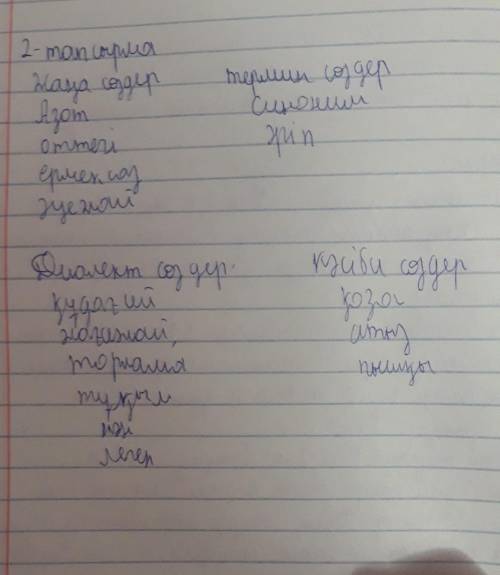 2-тапсырма
Жаңа сөздер
Азот
оттегі
ермексаз
әуежай
термин сөздер
Синоним
жіп
Диалект сөздер.
құдағий
жағажай,
торғама
тұқым
нән
леген
кәсіби сөздер
қозғ
атыз
пышқы